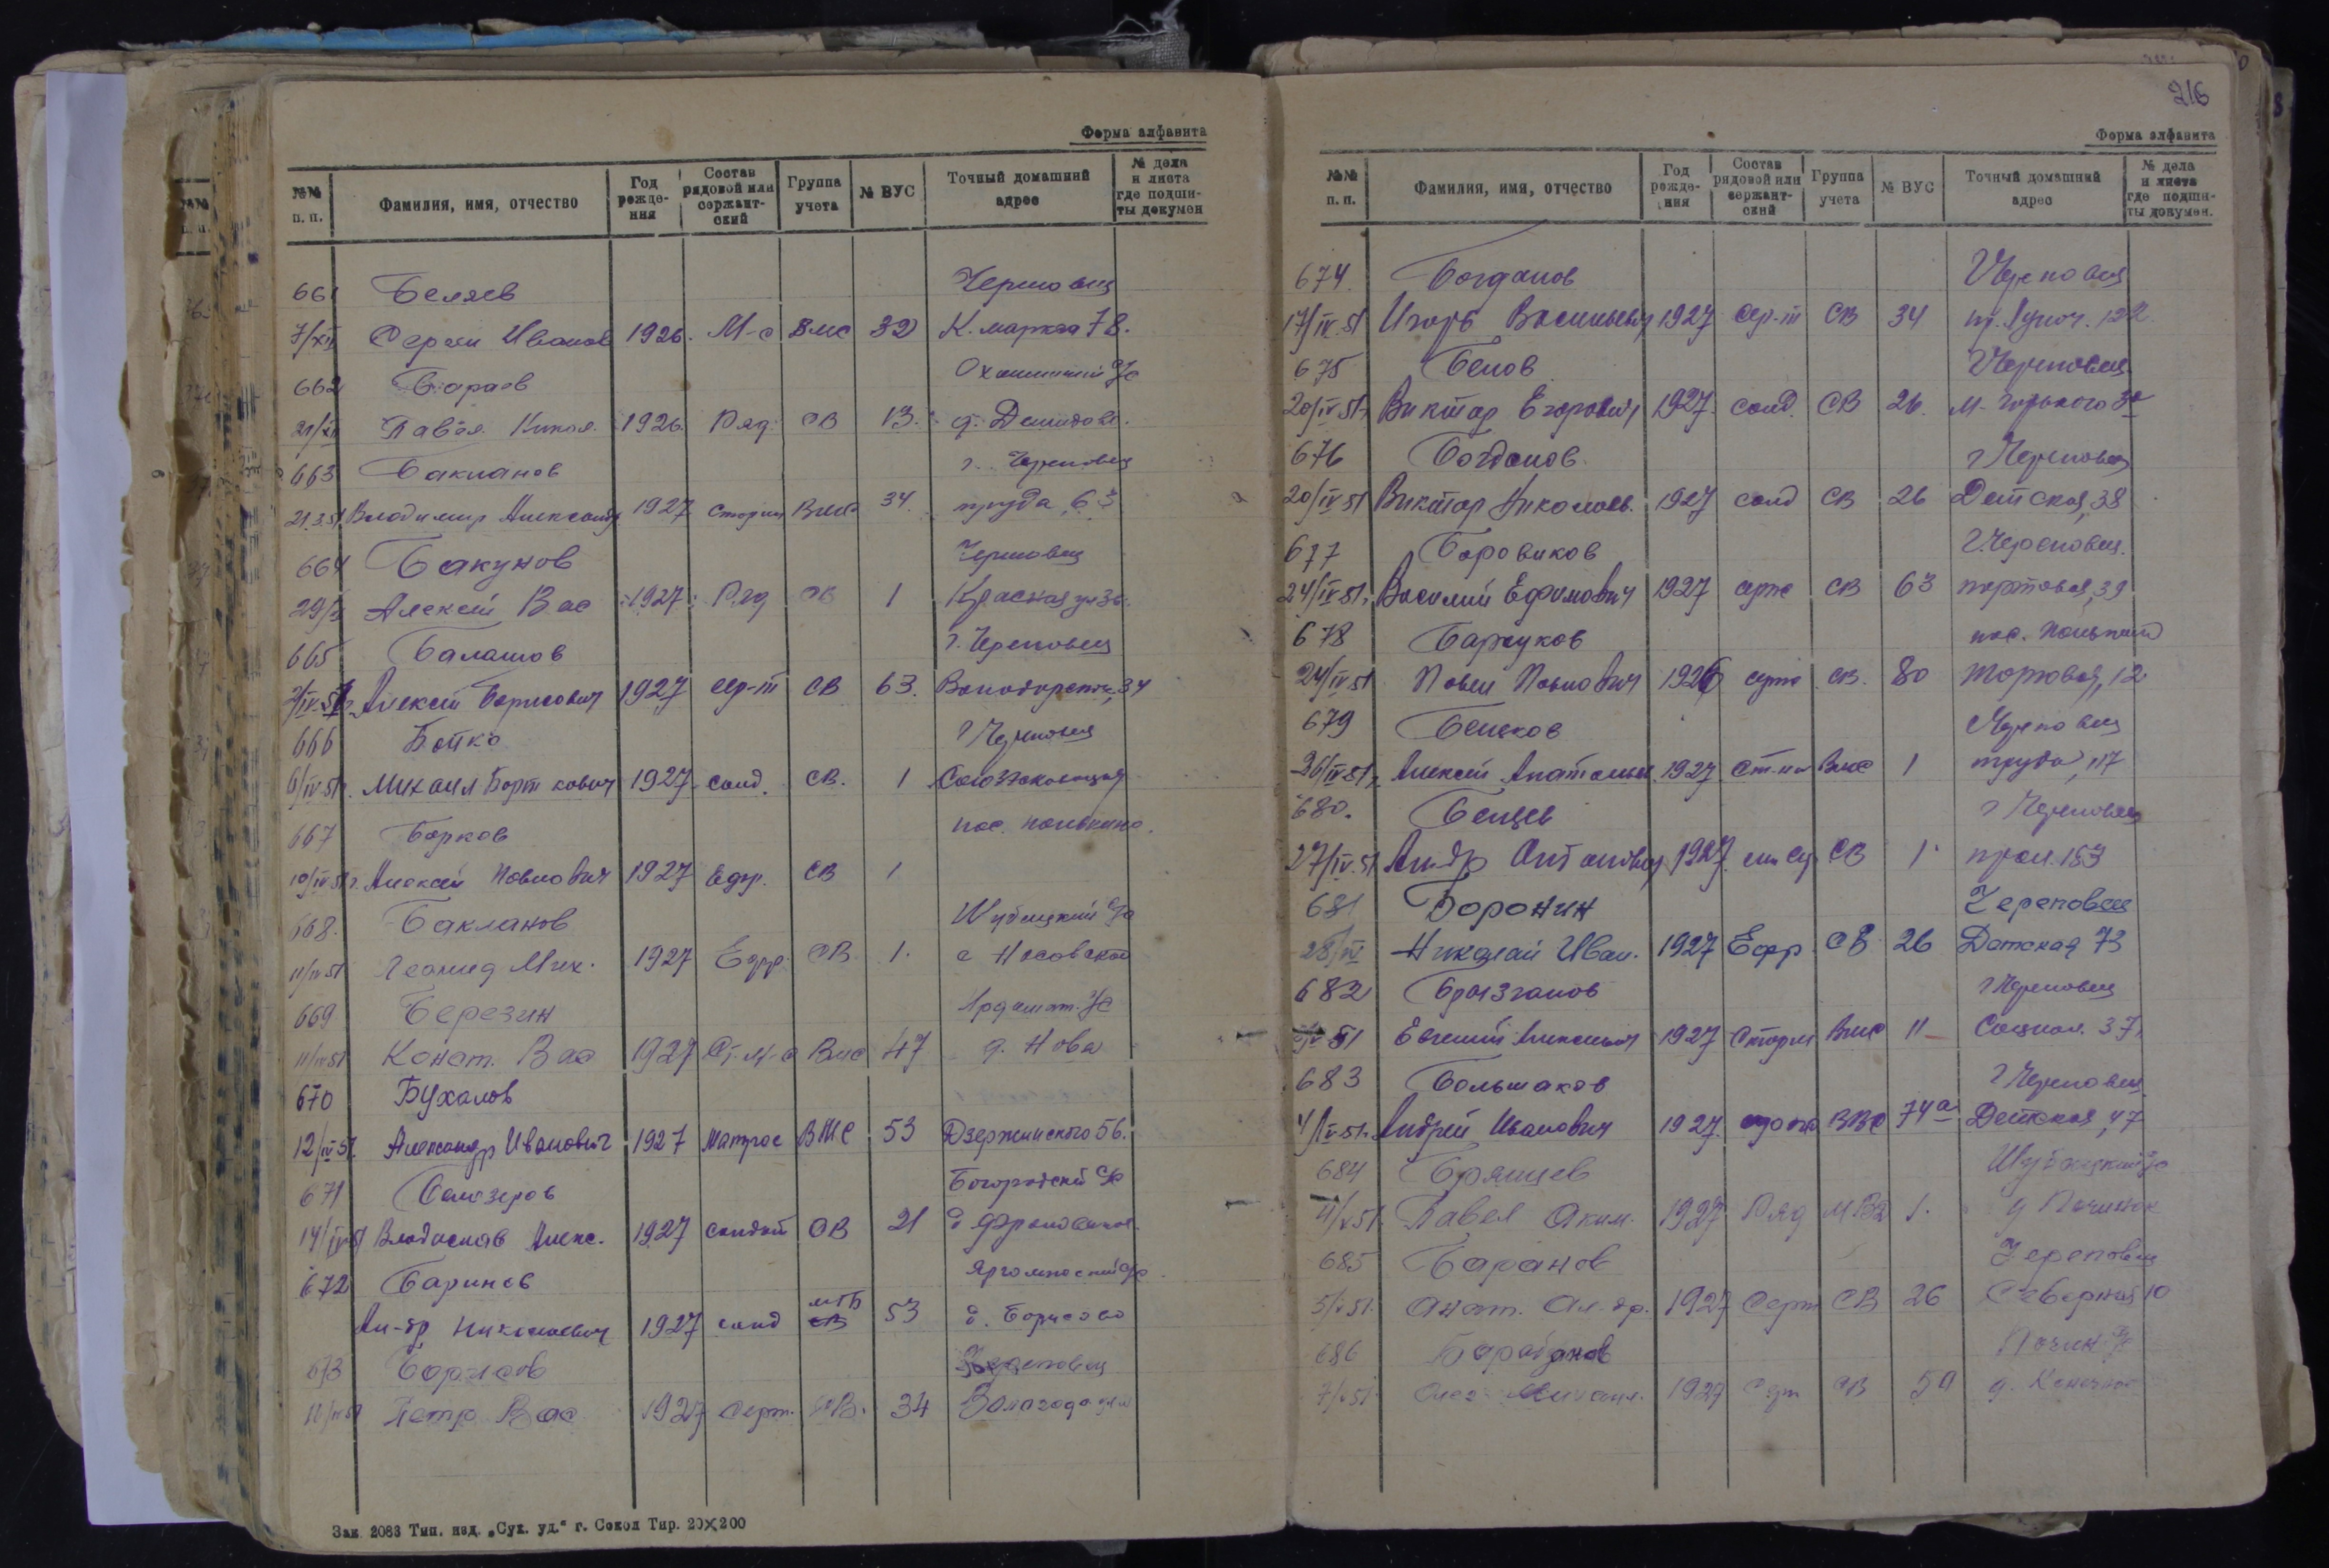 Форма алфавита
№№ п. п.
Фамилия, имя, отчество
Год рожде-ния
Состав рядовой или сержант-ский
Группа учета
№ ВУС
Точный домашний адрес
№ дела и листа где подши-ты докумен
661 Беляев Череповец
7/XII Сергей Иванов 1926. М-с ВМС 32 К. маркса 78.
662 Бараев с/с
21/XII Павел Никол. 1926. Ряд. СВ 13. д. Демидово.
663 Бакланов г. Череповец
21.3.51 Владимир Александр 1927 Старши ВМС 34. труда, 63
664 Бакунов Череповец
29/ Алексей Вас 1927 Ряд СВ 1 Красная ул 36.
665 Балашов г. Череповец
2/IV-51 Алексей Борисович 1927 сер-т СВ 63. Володарского, 34
666 Бойко г Череповец
6/IV 51г. Михаил 1927 солд. СВ. 1
667 Борков пос. панькино.
10/IV 51г. Алексей Павлович 1927 Ефр. СВ 1
668. Бакланов Шубацкий с/с
11/IV 51 Леонид Мих. 1927 Ефр. СВ 1.
669 Березин с/с
11/IV 51 Конст. Вас 1927 Ст. М-с ВМС 47 д. Нова
670 Бухалов
12/IV 51. Александр Иванович 1927 матрос ВМС 53 Дзержинского 56.
671 Белозеров Богородский с/с
14/IV 51 Владислав Алекс. 1927 солдат СВ 21
672 Баринов Ягомжский с/с
Ал-др Николаевич 1927 солд МГБ СВ 53 д. Борисово
673 Борисов Череповец
Петр Вас 1927 серж. СВ. 34
Зак. 2083 Тип. изд. „Сух. уд.“ г. Сокол Тир. 20×200
216
Форма алфавита
№№ п. п.
Фамилия, имя, отчество
Год рожде-ния
Состав рядовой или сержант-ский
Группа учета
№ ВУС
Точный домашний адрес
№ дела и листа где подши-ты докумен.
674. Богданов Череповец
17/IV.51 Игорь Васильевич 1927 сер-т СВ 34 пр. Луноч. 122
675 Белов г Череповец
20/IV 51г. Виктор Егорович 1927. солд. СВ 26. М. Горького
676 Богданов г Череповец
20/IV 51 Виктор Николаев. 1927 солд СВ 26 Детская, 38
677 Боровиков г. Череповец.
24/IV 51г. Василий Ефимович 1927 серж СВ 63 портовая, 39
678 Барсуков пос. панькино
24/IV 51 Павел Павлович 1926 серж СВ. 80 Торговая, 12
679 Череповец
26/IV-51г. Алексей Анатольев. 1927. ст-на ВМС 1 труда, 117
680. г Череповец
27/IV.51 Ал-др 1927. СВ 1. 153
681 Воронин Череповец
28/IV Николай Иван. 1927 Ефр. СВ 26 Детская 73
682 Брызгалов г Череповец
51 Евгений Алексеевич 1927 Старш ВМС 11 Социал. 37,
683 Большаков г Череповец
4/V-51г. Андрей Иванович 1927. 74а Детская, 47
684 Брянцев Шубацкий с/с
4/V 51. Павел Аким. 1927 Ряд 1. д Починок
685 Баранов Череповец
5/V 51. Анат. Ал-др. 1927 Серж СВ 26 Северная 10
686 с/с
7/V 51. 1927 СВ